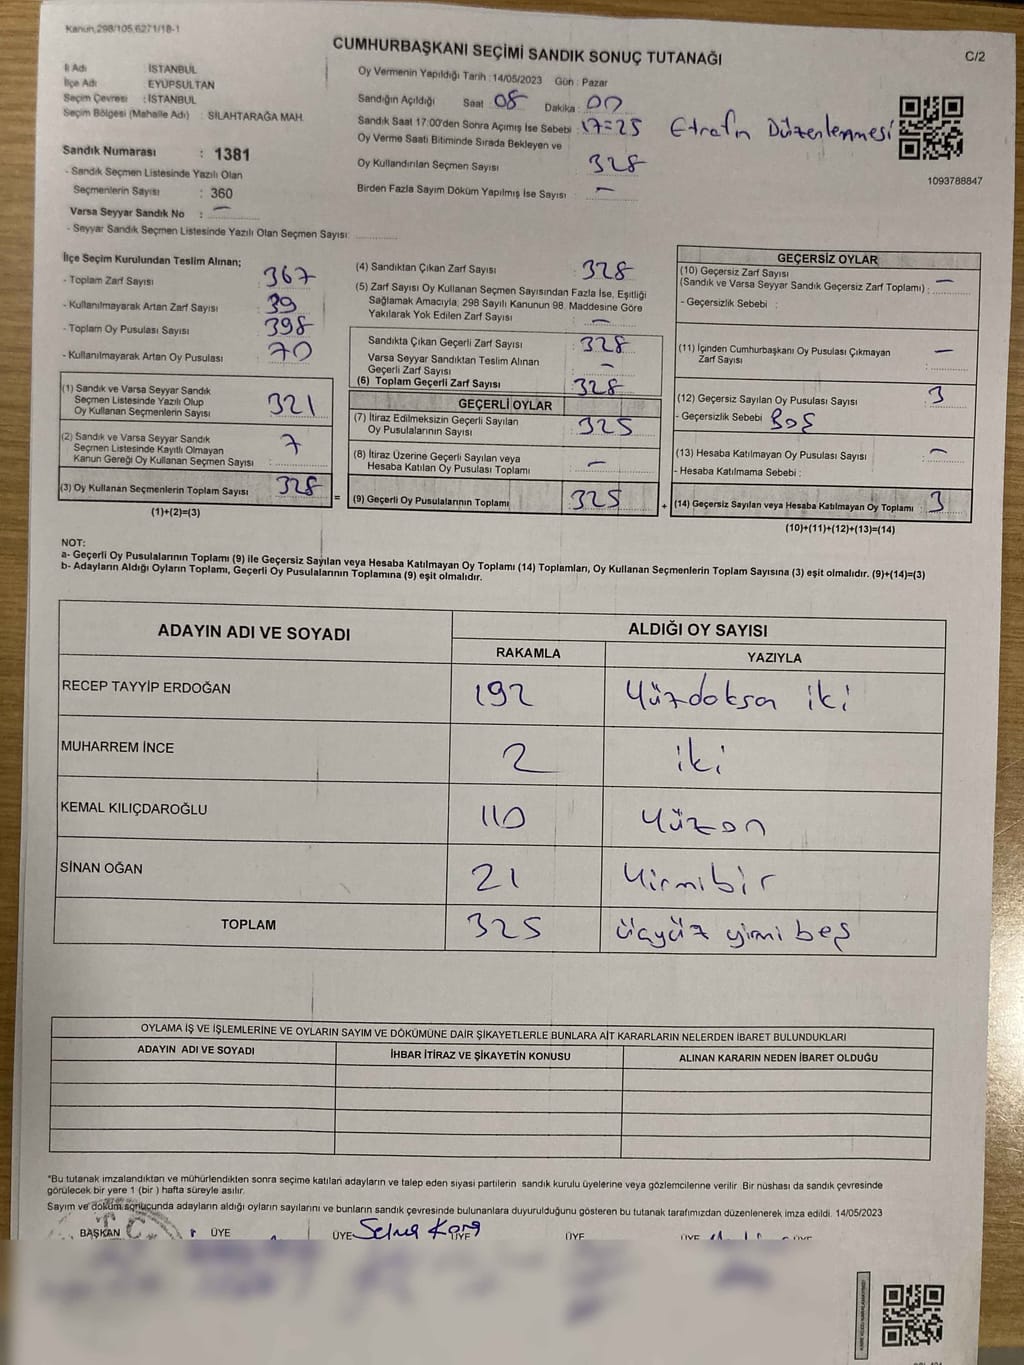 Kanun,298/105,6271/18-1
CUMHURBAŞKANI SEÇİMİ SANDIK SONUÇ TUTANAĞI
C/2
İl Adı : İSTANBUL
İlçe Adı : EYÜPSULTAN
Seçim Çevresi : İSTANBUL
Seçim Bölgesi (Mahalle Adı) : SİLAHTARAĞA MAH.
Sandık Numarası : 1381
- Sandık Seçmen Listesinde Yazılı Olan
Seçmenlerin Sayısı : 360
Varsa Seyyar Sandık No : —
- Seyyar Sandık Seçmen Listesinde Yazılı Olan Seçmen Sayısı:
Oy Vermenin Yapıldığı Tarih : 14/05/2023 Gün : Pazar
Sandığın Açıldığı Saat 08 Dakika : 00
Sandık Saat 17.00'den Sonra Açımış İse Sebebi : 17=25 Etrafın Düzenlenmesi
Oy Verme Saati Bitiminde Sırada Bekleyen ve
Oy Kullandırılan Seçmen Sayısı 328
Birden Fazla Sayım Döküm Yapılmış İse Sayısı : —
1093788847
İlçe Seçim Kurulundan Teslim Alınan;
- Toplam Zarf Sayısı : 367
- Kullanılmayarak Artan Zarf Sayısı : 39
- Toplam Oy Pusulası Sayısı : 398
- Kullanılmayarak Artan Oy Pusulası : 70
(1) Sandık ve Varsa Seyyar Sandık
Seçmen Listesinde Yazılı Olup
Oy Kullanan Seçmenlerin Sayısı : 321
(2) Sandık ve Varsa Seyyar Sandık
Seçmen Listesinde Kayıtlı Olmayan
Kanun Gereği Oy Kullanan Seçmen Sayısı : 7
(3) Oy Kullanan Seçmenlerin Toplam Sayısı : 328
(1)+(2)=(3)
=
(4) Sandıktan Çıkan Zarf Sayısı : 328
(5) Zarf Sayısı Oy Kullanan Seçmen Sayısından Fazla İse, Eşitliği
Sağlamak Amacıyla; 298 Sayılı Kanunun 98. Maddesine Göre
Yakılarak Yok Edilen Zarf Sayısı : —
Sandıkta Çıkan Geçerli Zarf Sayısı : 328
Varsa Seyyar Sandıktan Teslim Alınan
Geçerli Zarf Sayısı : —
(6) Toplam Geçerli Zarf Sayısı 328
GEÇERLİ OYLAR
(7) İtiraz Edilmeksizin Geçerli Sayılan
Oy Pusulalarının Sayısı : 325
(8) İtiraz Üzerine Geçerli Sayılan veya
Hesaba Katılan Oy Pusulaları Toplamı : —
(9) Geçerli Oy Pusulalarının Toplamı 325
+
GEÇERSİZ OYLAR
(10) Geçersiz Zarf Sayısı
(Sandık ve Varsa Seyyar Sandık Geçersiz Zarf Toplamı) : —
- Geçersizlik Sebebi :
(11) İçinden Cumhurbaşkanı Oy Pusulası Çıkmayan
Zarf Sayısı : —
(12) Geçersiz Sayılan Oy Pusulası Sayısı : 3
- Geçersizlik Sebebi Boş
(13) Hesaba Katılmayan Oy Pusulası Sayısı : —
- Hesaba Katılmama Sebebi :
(14) Geçersiz Sayılan veya Hesaba Katılmayan Oy Toplamı : 3
(10)+(11)+(12)+(13)=(14)
NOT:
a- Geçerli Oy Pusulalarının Toplamı (9) ile Geçersiz Sayılan veya Hesaba Katılmayan Oy Toplamı (14) Toplamları, Oy Kullanan Seçmenlerin Toplam Sayısına (3) eşit olmalıdır. (9)+(14)=(3)
b- Adayların Aldığı Oyların Toplamı, Geçerli Oy Pusulalarının Toplamına (9) eşit olmalıdır.
ADAYIN ADI VE SOYADI
ALDIĞI OY SAYISI
RAKAMLA YAZIYLA
RECEP TAYYİP ERDOĞAN 192 Yüzdoksan iki
MUHARREM İNCE 2 iki
KEMAL KILIÇDAROĞLU 110 Yüzon
SİNAN OĞAN 21 Yirmibir
TOPLAM 325 üçyüz yirmi beş
OYLAMA İŞ VE İŞLEMLERİNE VE OYLARIN SAYIM VE DÖKÜMÜNE DAİR ŞİKAYETLERLE BUNLARA AİT KARARLARIN NELERDEN İBARET BULUNDUKLARI
ADAYIN ADI VE SOYADI İHBAR İTİRAZ VE ŞİKAYETİN KONUSU ALINAN KARARIN NEDEN İBARET OLDUĞU
*Bu tutanak imzalandıktan ve mühürlendikten sonra seçime katılan adayların ve talep eden siyasi partilerin sandık kurulu üyelerine veya gözlemcilerine verilir. Bir nüshası da sandık çevresinde
görülecek bir yere 1 (bir ) hafta süreyle asılır.
Sayım ve döküm sonucunda adayların aldığı oyların sayılarını ve bunların sandık çevresinde bulunanlara duyurulduğunu gösteren bu tutanak tarafımızdan düzenlenerek imza edildi. 14/05/2023
BAŞKAN ÜYE ÜYE ÜYE ÜYE ÜYE ÜYE
T.C.